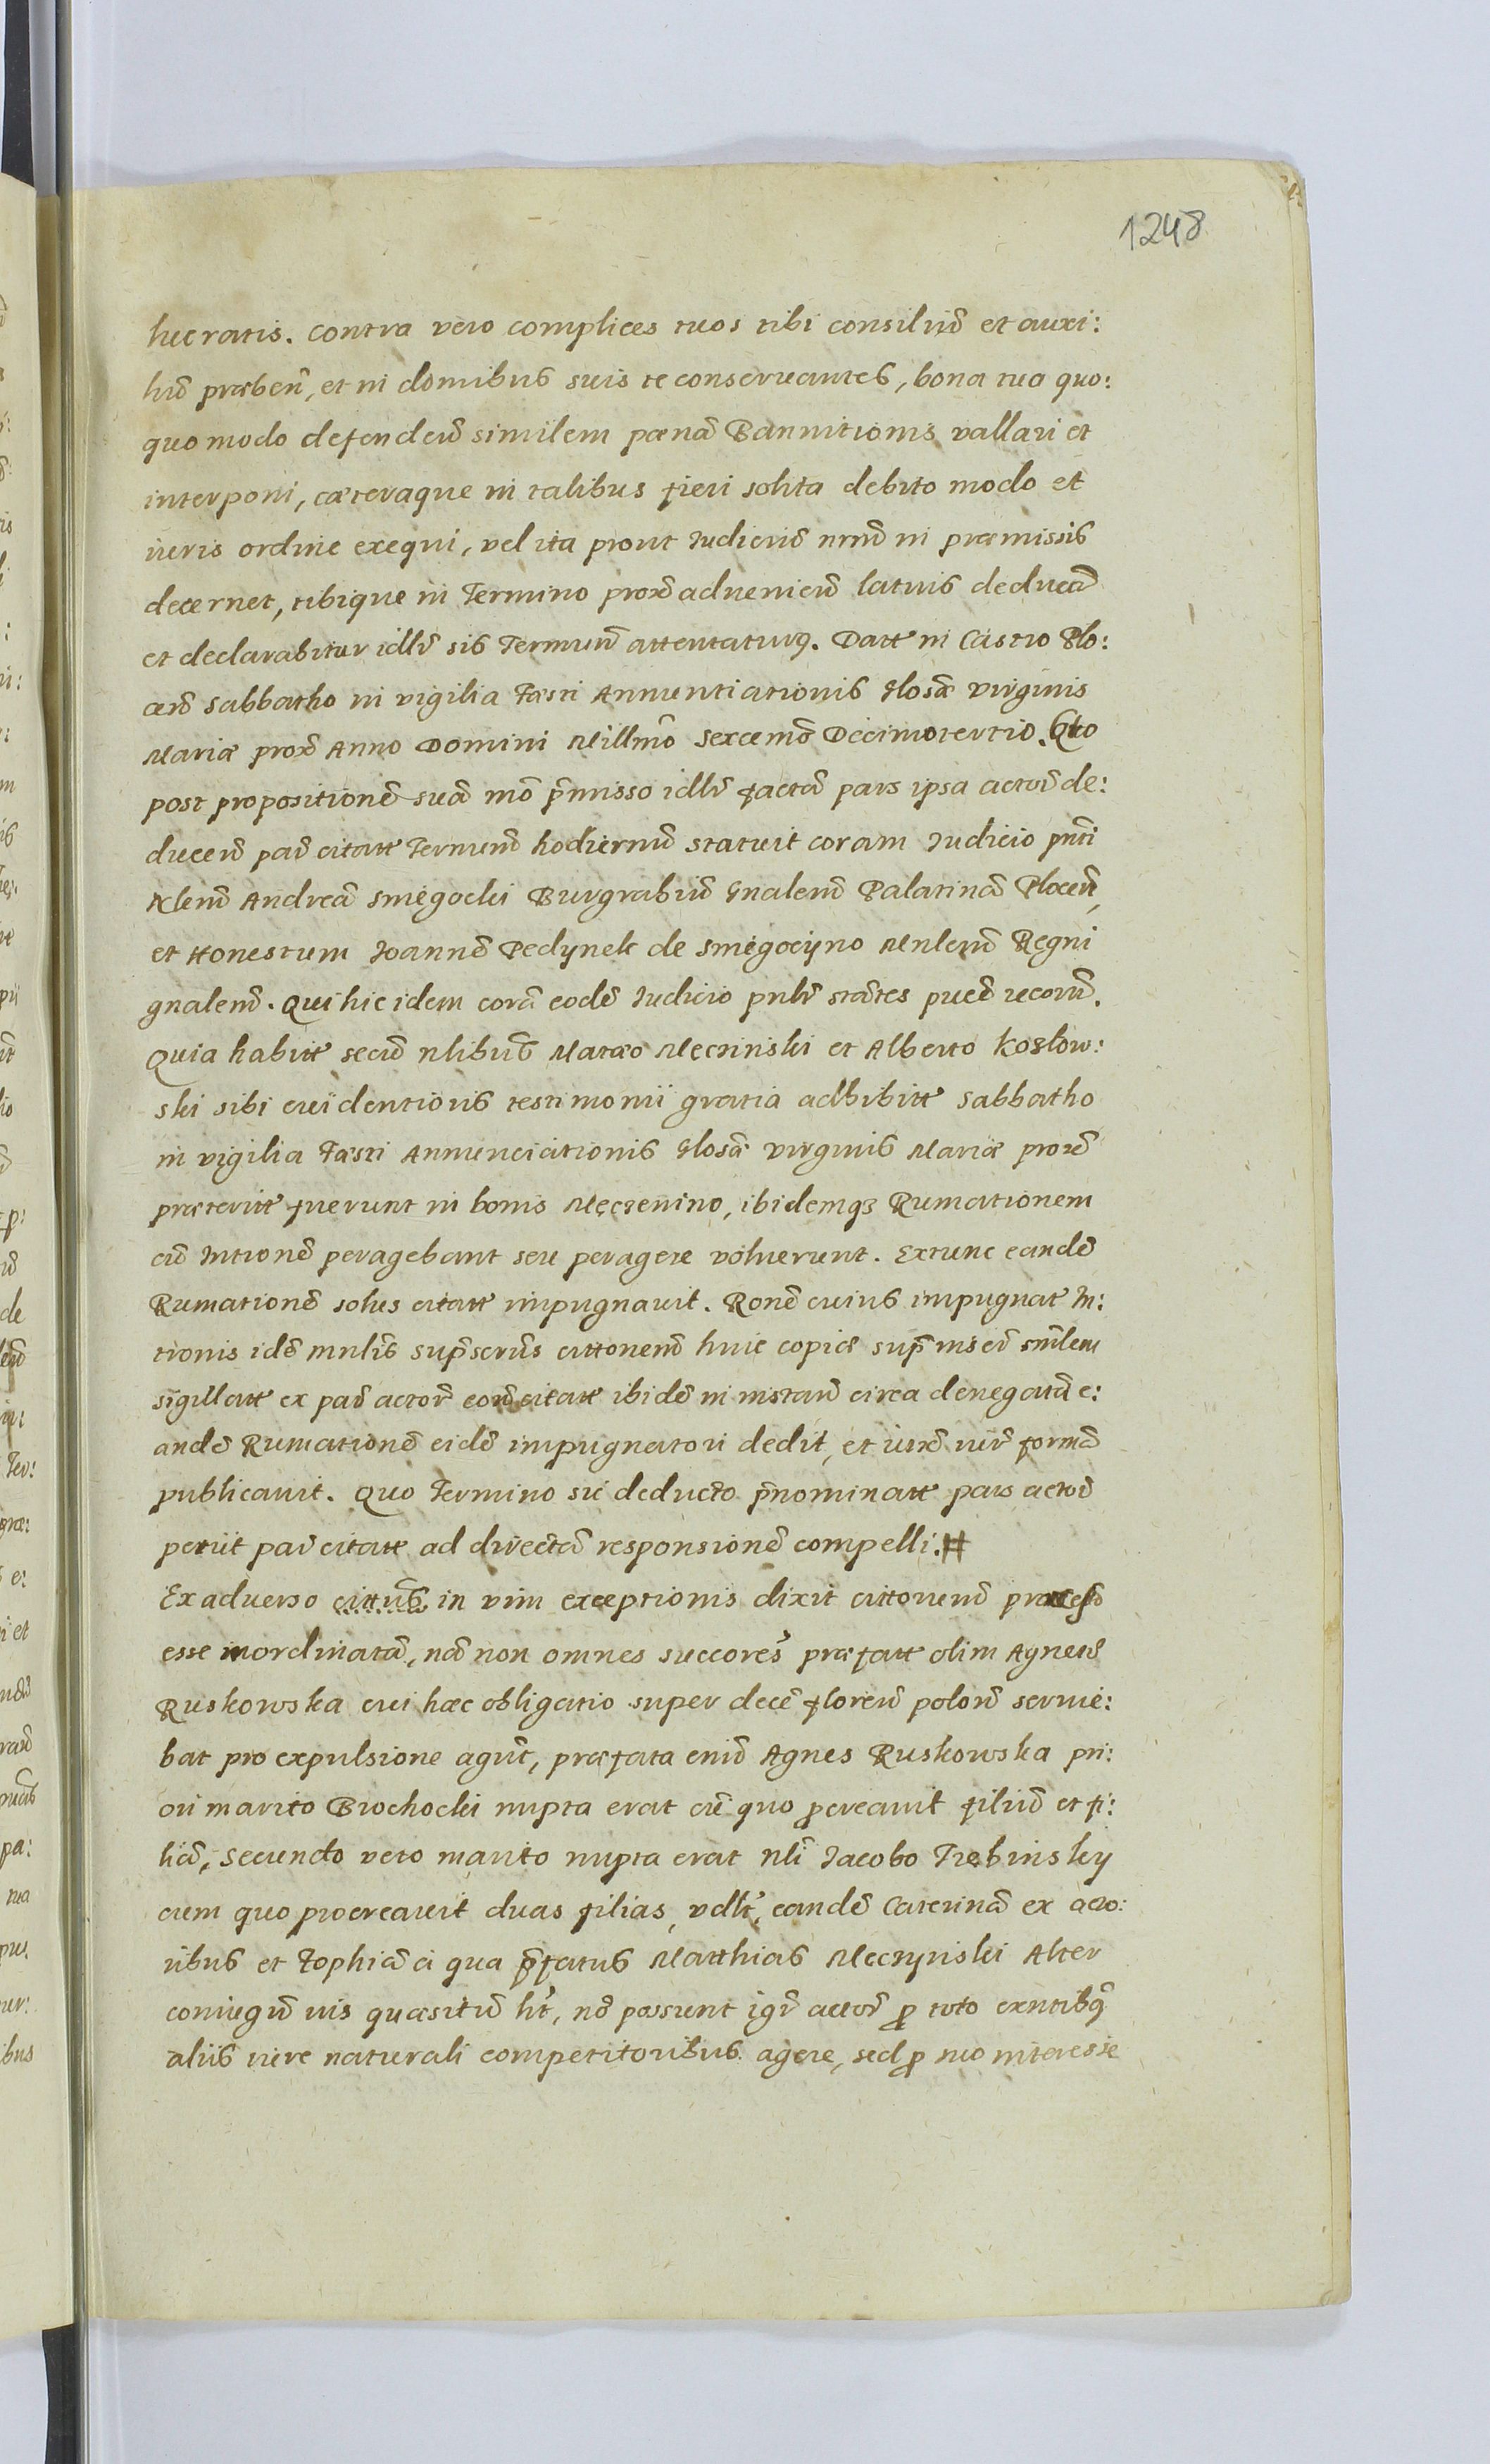 1248
lucratis. Contra vero complices tuos tibi consiliũ et auxi:
liũ præbeñ, et in domibus suis te conseruantes, bona tua quo:
quo modo defendeñ similem pœnã Bannitionis vallari et
interponi, cæteraque in talibus fieri solita debito modo et
iuris ordine exequi, vel ita prout Iudiciũ nrm̃ in præmissis
decernet, tibique in Termino prox̃ aduenieñ latius deducet̃
et declarabitur idlr̃ sis Terminũ attentaturq̃. Datt̃ in Castro Plo:
ceñ Sabbatho in vigilia Fæsti Annuntiationis Glosæ Virginis
Mariæ prox̃ Anno Domini Millm̃o Sexcenm̃o Decimotertio. Quo
post propositionẽ suã mõ p̃misso idlr̃ factã pars ipsa actor̃ de:
duceñ par̃ citatt̃ Terminũ hodiernũ statuit coram Iudicio pñti
Nlem̃ Andreã Smęgocki Burgrabiũ Gnalem̃ Palatinat̃ Ploceñ,
et Honestum Ioannẽ Pedynek de Smęgocyno Mnlem̃ Regni
gnalem̃. Qui hic idem corã eodẽ Iudicio pnlr̃ stãtes pued̃ recoñ.
Quia habitt̃ secũ nlibus̃ Matæo Męczinski et Alberto Kozlow:
ski sibi euidentioris testimonii gratia adhibitt̃ Sabbatho
in vigilia Fæsti Annunciationis Glosæ Virginis Mariæ prox̃
præteritt̃ fuerunt in bonis Męczenino, ibidemq3 Rumationem
cũ Intronẽ peragebant seu peragere voluerunt. Extunc eandẽ
Rumationẽ solus citatt̃ impugnauit. Ronẽ cuius impugnat In:
tionis idẽ mnlis̃ sup̃scrus̃ cittonem̃ huic copiæ sup̃ inser̃ smlem
sigillatt̃ ex par̃ actor̃ eor̃ citatt̃ ibidẽ in instanĩ circa denegatã e:
andẽ Rumationẽ eidẽ impugnatori dedit, et iuxt̃ iur̃ formã
publicauit. Quo Termino sic deducto p̃nominatt̃ pars actor̃
petiit par̃ citatt̃ ad directã responsionẽ compelli. #
Ex aduerso cittus̃ in vim exceptionis dixit cittonem̃ processo
esse inordinatã, nã non omnes succores̃ præfatt̃ olim Agnetis̃
Ruskowska cui hæc obligatio super decẽ floreñ poloñ seruie:
bat pro expulsione agũt, præfata enĩ Agnes Ruskowska pri:
ori marito Brochocki nupta erat cũ quo pcreauit filiũ et fi:
liã, Secundo vero marito nupta erat Nli Iacobo Trębinsky
cum quo procreauit duas filias, vdlt̃, eandẽ Caterinã ex acto:
ribus et Zophiã a qua p̃fatus Matthias Męczynski Alter
coniugũ ius quæsitũ ht̃, nõ possunt igr̃ actor̃ p toto exntibq̃
aliis iure naturali competitoribus agere, sed p suo interesse